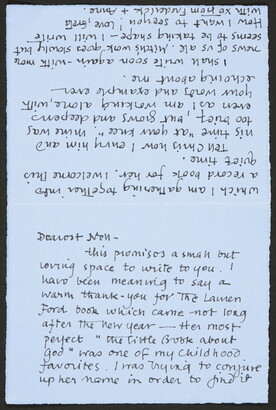 Dearest Nell -
this promises a small but
loving space to write to you. I
have been meaning to say a
warm thank-you for the Lauren
Ford book which came not long
after the New Year — Her most
perfect "The Little Book about
God" was one of my childhood
favorites. I was trying to conjure
up her name in order to find it
which I am gathering together into
a record book for her. I welcome this
quiet time.
Tell Chris how I envy him and
his time "at your knee". mine was
too brief, but grows and deepens
even as I am working alone, with
your words and example ever
echoing about me.
I shall write soon again - with more
news of us all. Mitzi's work goes slowly but
seems to be taking shape. I will write
How I want to see you! Love, Greta
with xo from Frederick + Anne.